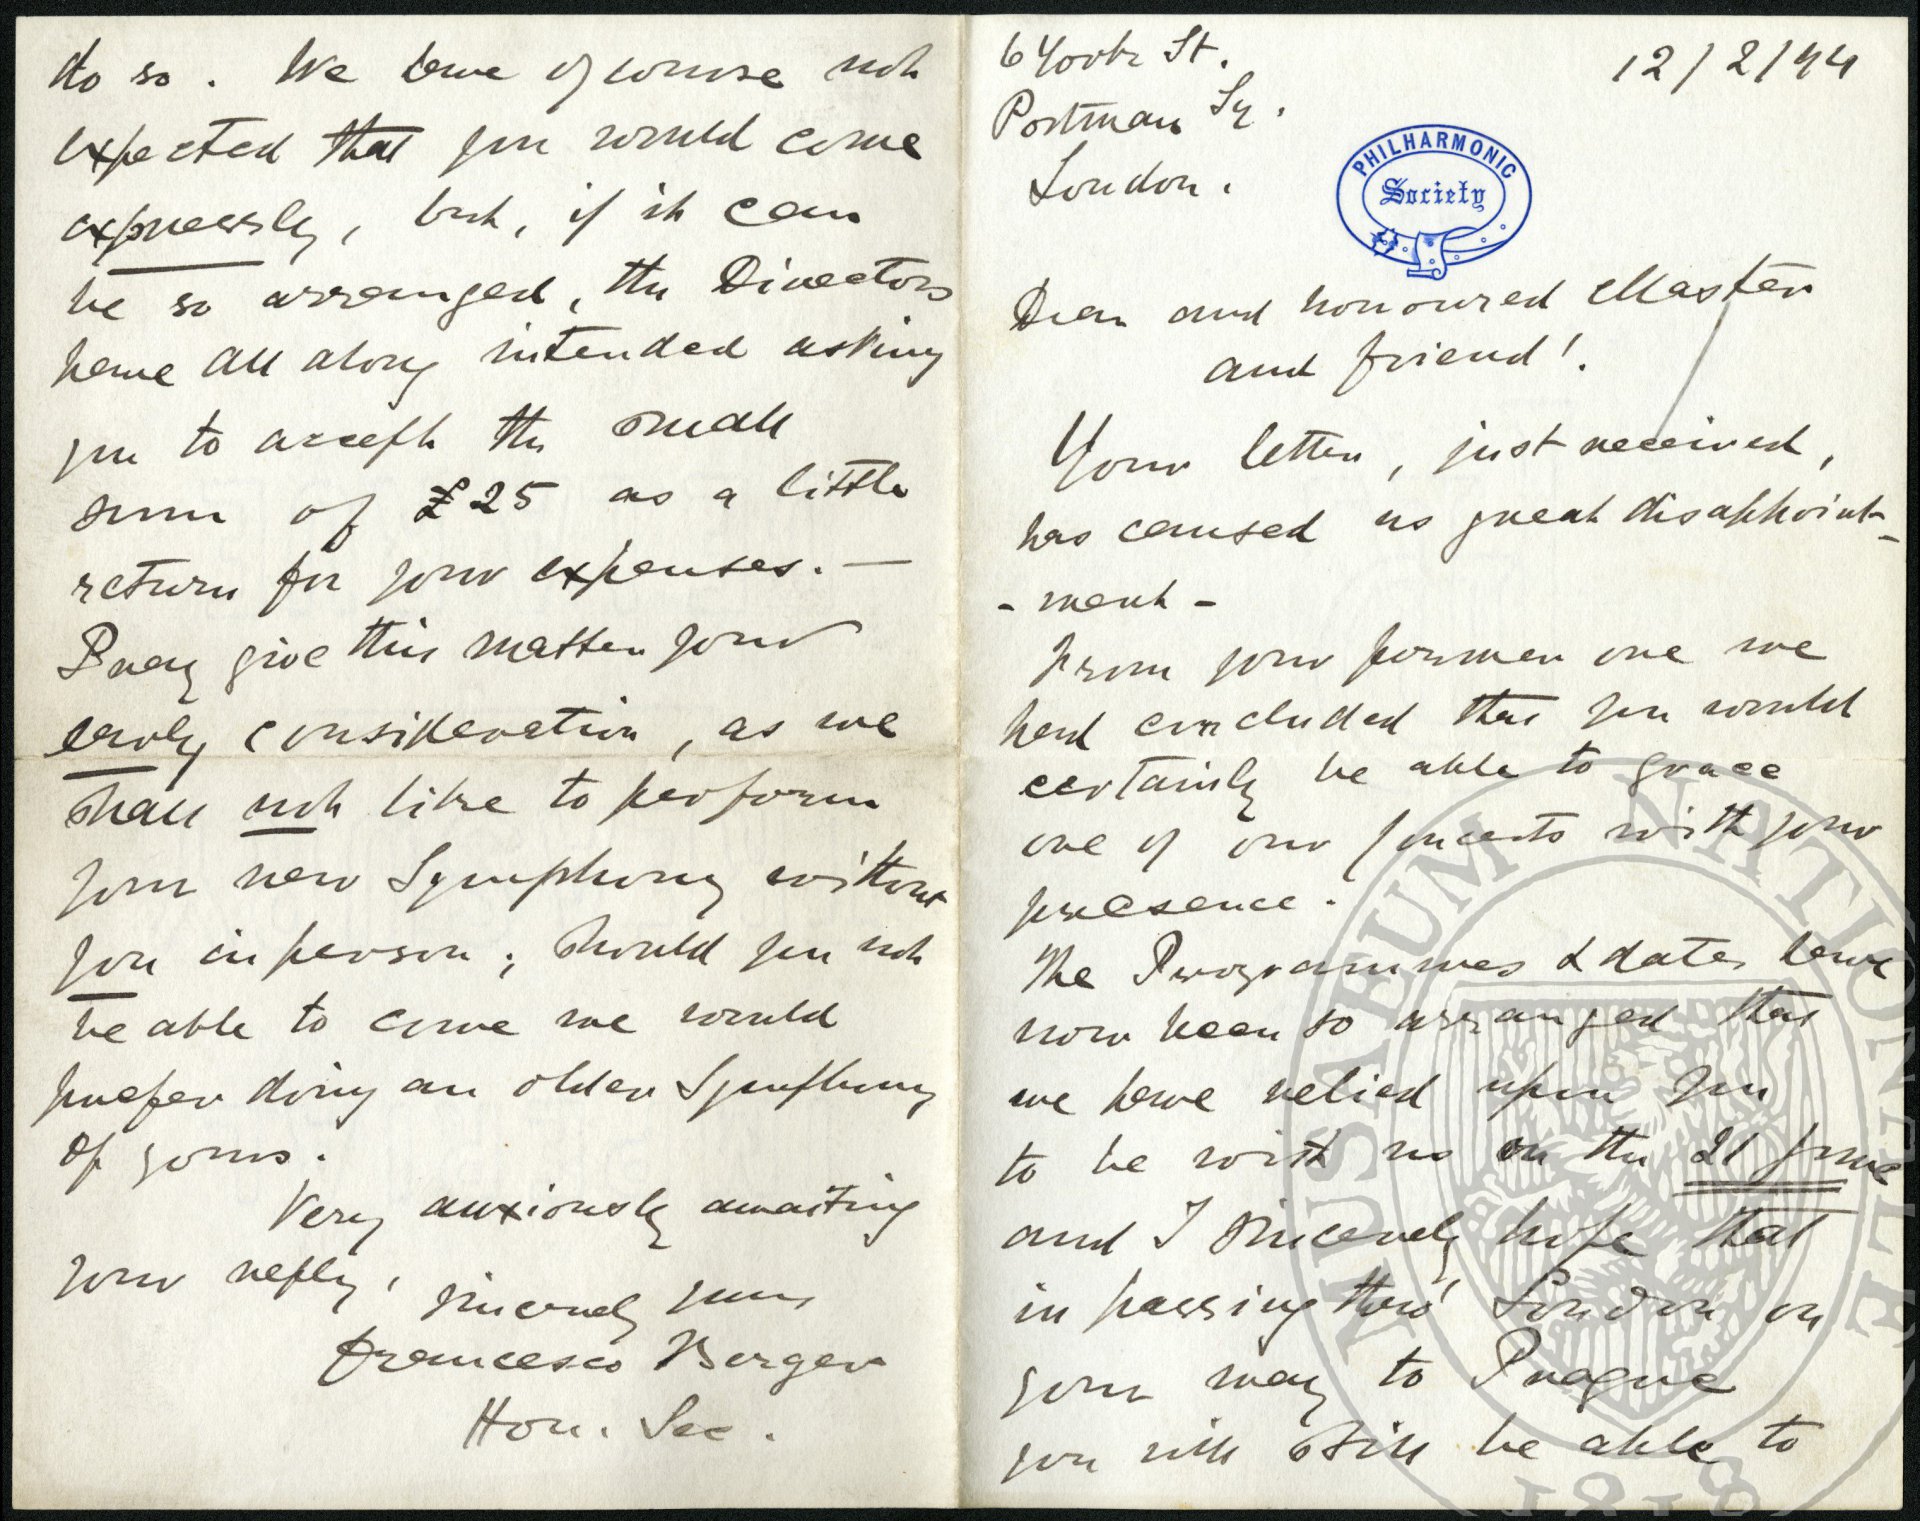 6 York St.
Portman Sq.
London.
12/2/94
PHILHARMONIC
Society
Dear and honoured Master
and friend!.
Your letter, just received,
has caused us great disappoint-
- ment -
From your former one we
had concluded that you would
certainly be able to grace
one of our Concerts with your
presence.
The Programmes & dates have
now been so arranged that
we have relied upon you
to be with us on the 21 June
and I sincerely hope that
in passing thro' London on
your way to Prague
you will still be able to
do so. We have of course not
expected that you would come
expressly, but, if it can
be so arranged, the Directors
have all along intended asking
you to accept the small
sum of £25 as a little
return for your expenses. —
Pray give this matter your
early consideration, as we
shall not like to perform
your new Symphony without
you in person; should you not
be able to come we would
prefer doing an older Symphony
of yours.
Very anxiously awaiting
your reply,
sincerely yours
Francesco Berger
Hon. Sec.
MUSAEUM NATIONALE
1818